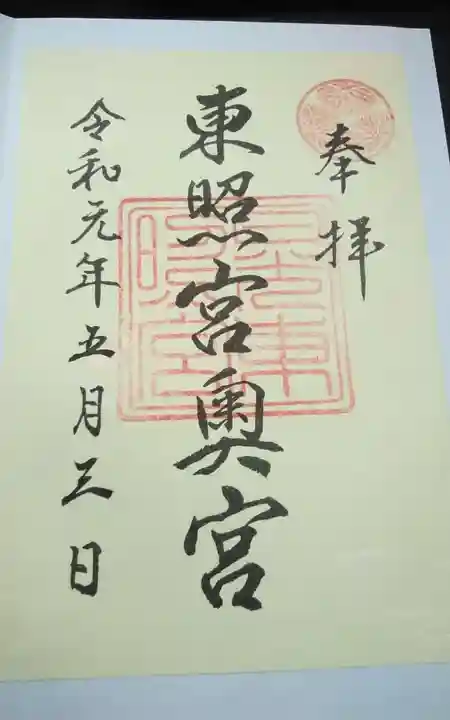 奉拝
東照宮奥宮
令和元年五月三日